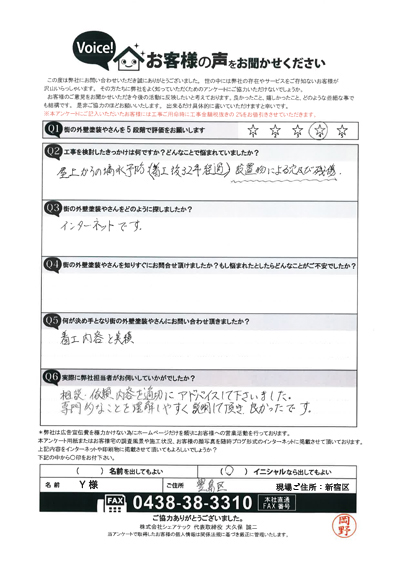 Voice!
お客様の声をお聞かせください
この度は弊社にお問い合わせいただき誠にありがとうございました。世の中には弊社の存在やサービスをご存知ないお客様が
沢山いらっしゃいます。その方たちに弊社をよく知っていただくためのアンケートにご協力いただけないでしょうか。
お客様のご意見をお聞かせいただき今後の活動に反映したいと考えております。良かったこと、嬉しかったこと、どのような些細な事で
も結構です。是非ご協力のほどお願いいたします。出来るだけ具体的に書いていただけますと幸いです。
Q1 街の外壁塗装やさんを5段階で評価をお願いします
☆ ☆ ☆ ☆ ☆
Q2 工事を検討したきっかけは何ですか?どんなことで悩まれていましたか?
屋上からの漏水予防(着工後32年経過)設置物による穴及び残傷.
Q3 街の外壁塗装やさんをどのように探しましたか?
インターネットです.
Q4 街の外壁塗装やさんを知りすぐにお問合せ頂けましたか?もし悩まれたとしたらどんなことがご不安でしたか?
Q5 何が決め手となり街の外壁塗装やさんにお問い合わせ頂きましたか?
着工内容と実積
Q6 実際に弊社担当者がお伺いしていかがでしたか?
相談・依頼内容を適切にアドバイスして下さいました。
専門的なことを理解しやすく説明して頂き良かったです.
*弊社は広告宣伝費を極力かけない為にホームページだけを頼りにお客様への営業活動を行っております。
本アンケート用紙またはお客様宅の調査風景や施工状況、お客様の顔写真を随時ブログ形式のインターネットに掲載させて頂いております。
上記内容をインターネットや印刷物に掲載させて頂いてもよろしいでしょうか?
下記の中から○印をお付下さい。
( )名前を出してもよい (○)イニシャルなら出してもよい
名前 Y 様 ご住所 豊島区 現場ご住所:新宿区
FAX 0438-38-3310 本社直通 FAX番号
ご協力ありがとうございました。
株式会社シェアテック 代表取締役 大久保 誠二
当アンケートで取得したお客様の個人情報は関係法規に基づき厳正に管理いたします。
岡野